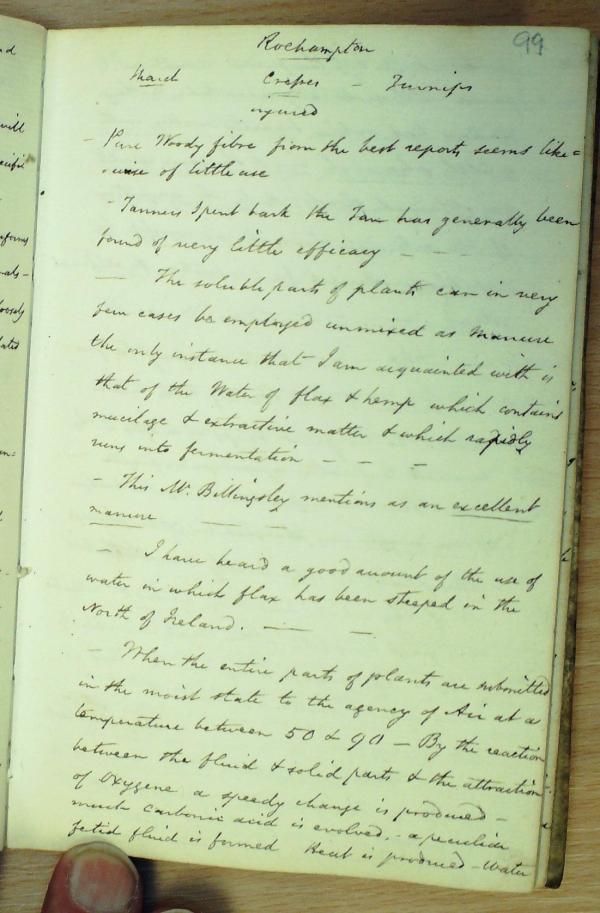 99
Roehampton
March Cresses - Turnips
injured
- Pure Woody fibre from the best reports seems like=
=wise of little use
- Tanners spent bark the Tan has generally been
found of very little efficacy - - -
— The soluble parts of plants can in very
few cases be employed unmixed as manure
the only instance that I am acquainted with is
that of the Water of flax & hemp which contains
mucilage & extractive matter & which rapidly
runs into fermentation - - -
- This Mr. Billingsley mentions as an excellent
manure — —
— I have heard a good account of the use of
water in which flax has been steeped in the
North of Ireland. — —
- When the entire parts of plants are submitted
in the moist state to the agency of Air at a
temperature between 50 & 90 - By the reaction
between the fluid & solid parts & the attraction
of Oxygene a speedy change is produced -
much carbonic acid is evolved, - a peculiar
fetid fluid is formed Heat is produced - Water